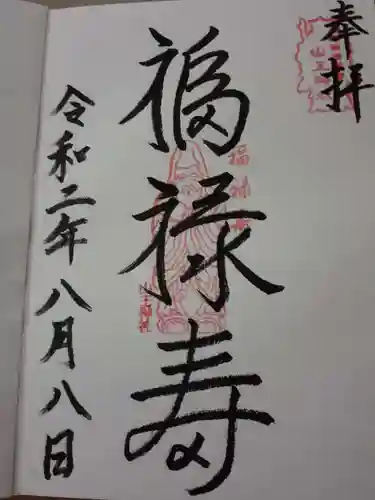 奉拝
福禄寿
令和二年八月八日